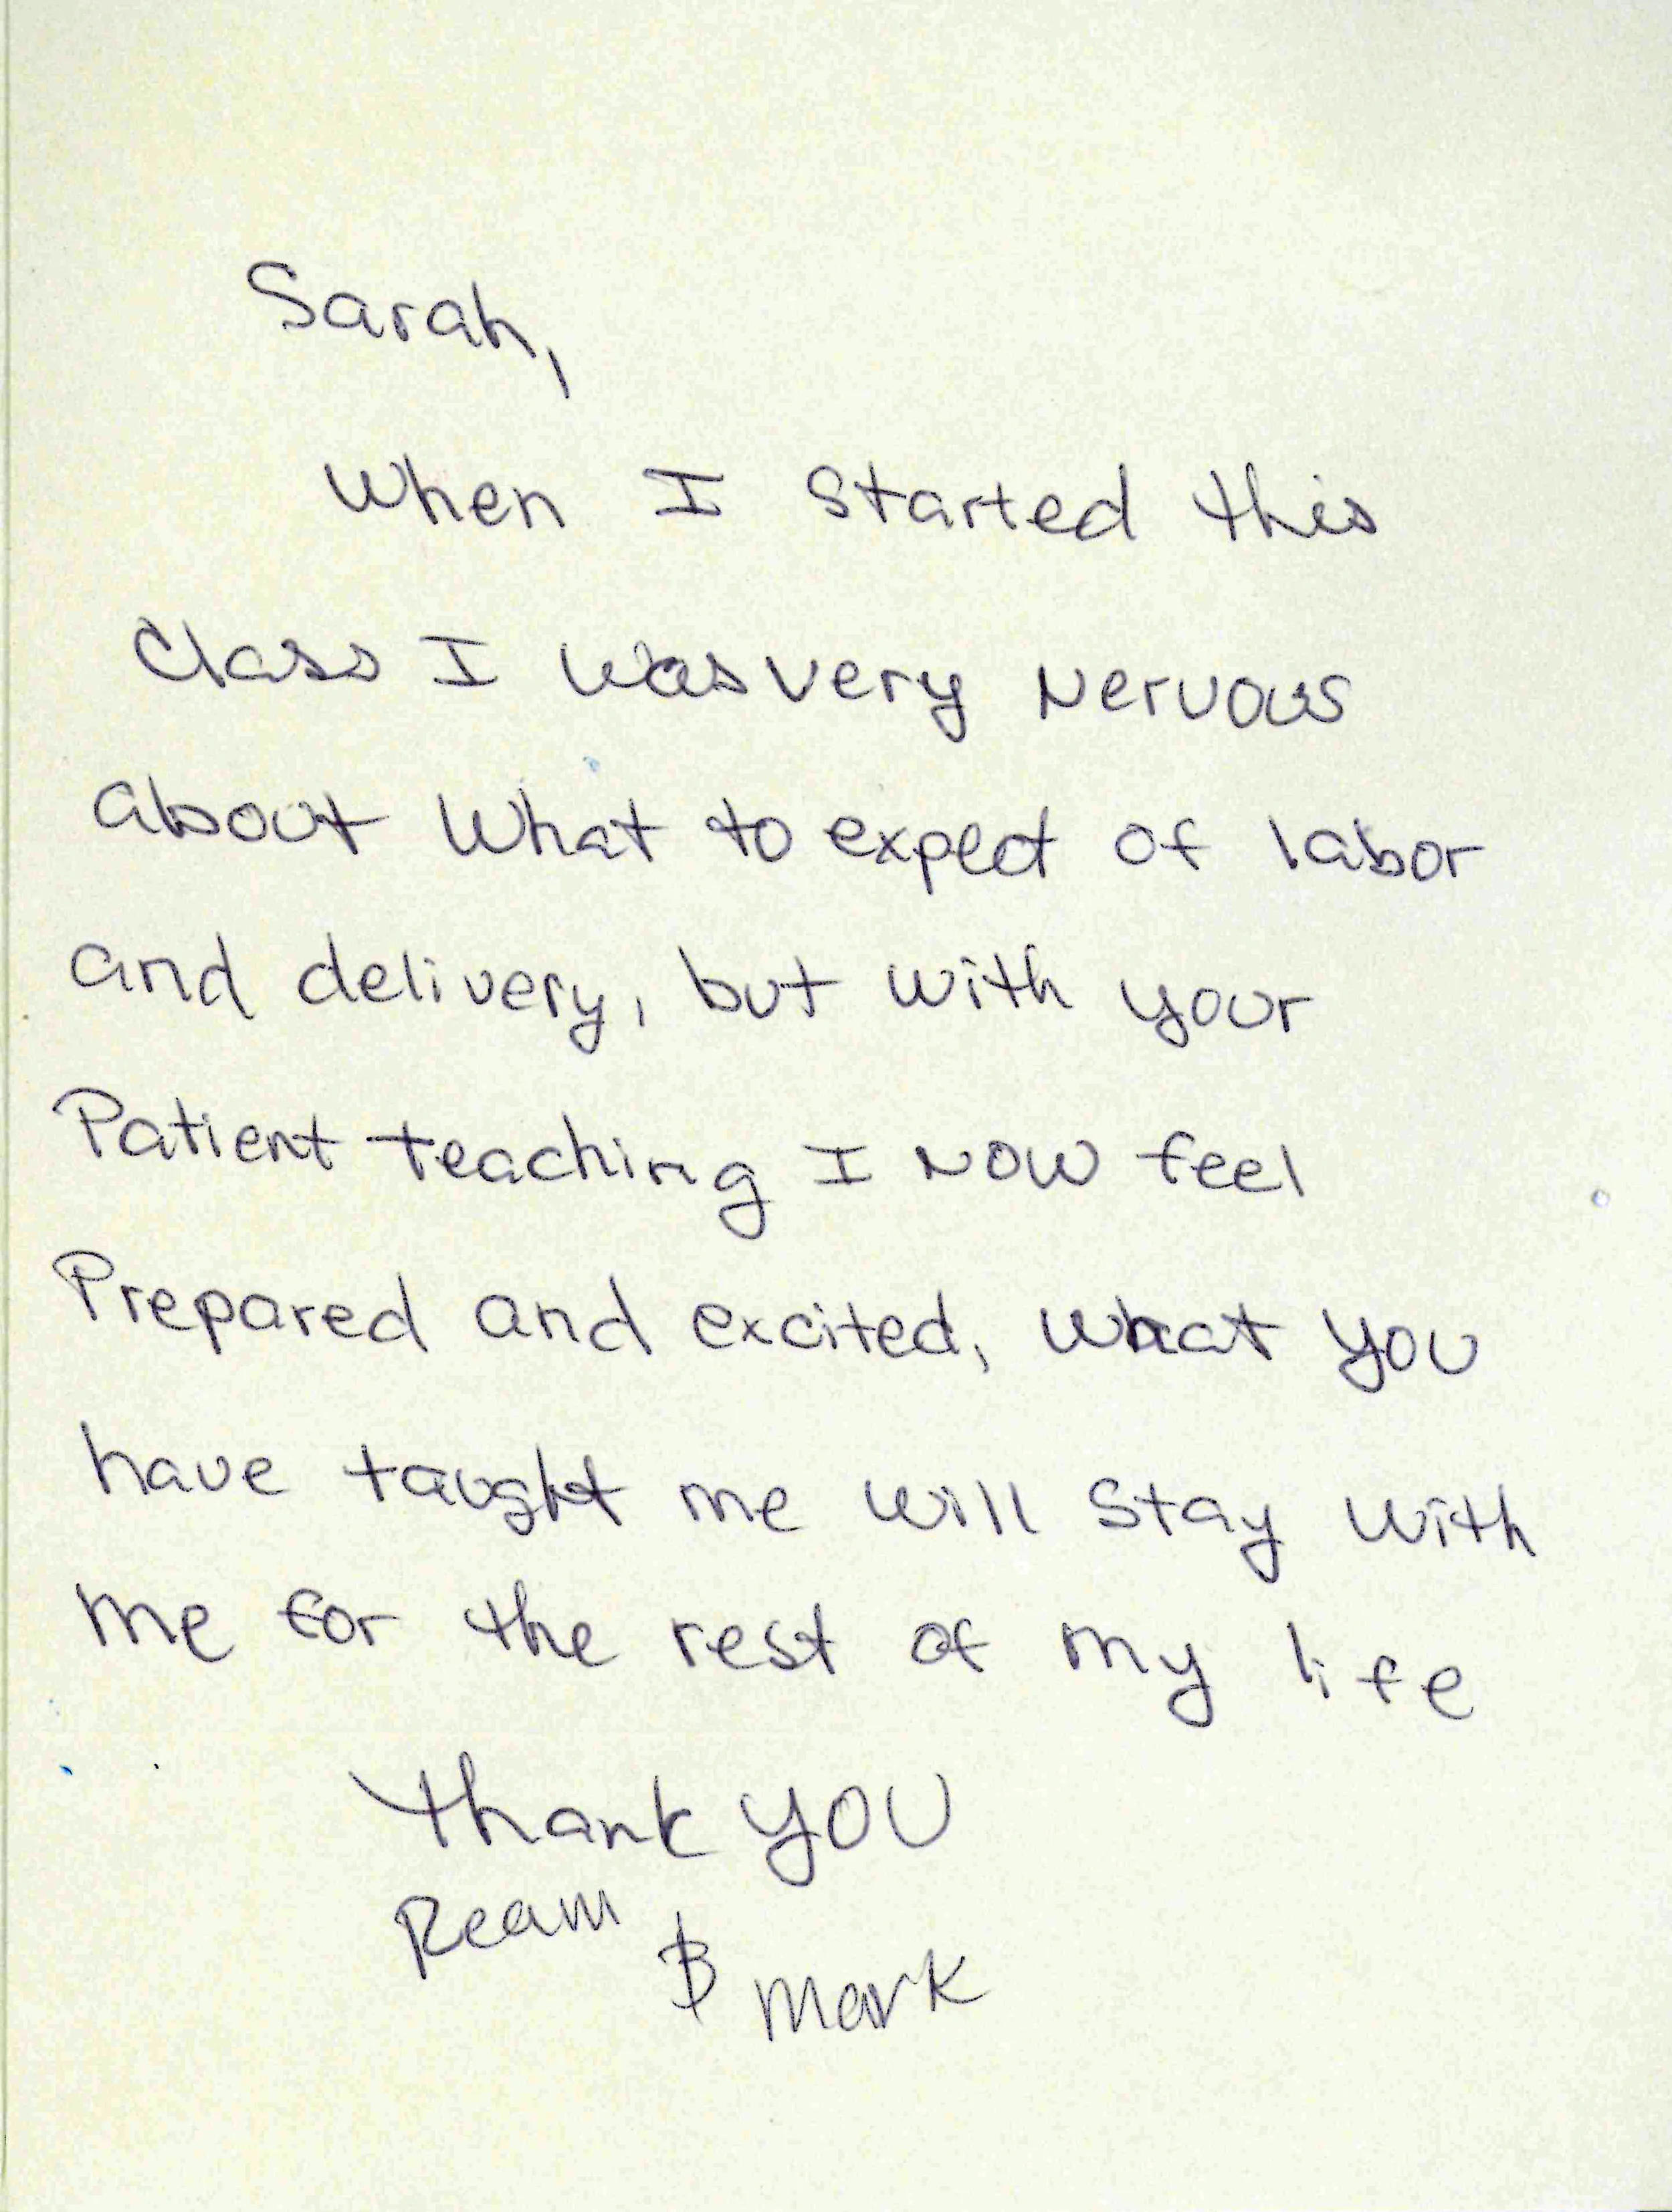 Sarah,
When I started this
Class I was very Nervous
about What to expect of labor
and delivery, but with your
Patient teaching I NOW feel
Prepared and excited, what you
have taught me will stay with
me for the rest of my life
Thank YOU
Ream & Mark